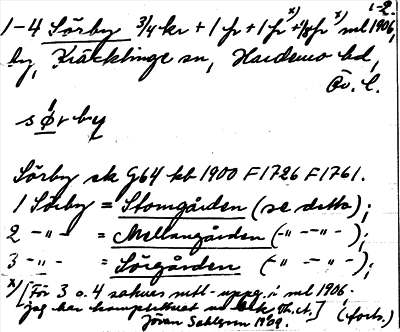 1-2.
1-4 Sörby 3/4 kr + 1 fr + 1 fr x) + 1/8 fr x) ml 1906,
by, Kräcklinge sn, Hardemo hd,
Ör. l.
s ø r b y
Sörby sk G64 kb 1900 F1726 F1761.
1 Sörby = Storgården (se detta);
2 -"- = Mellangården (-"- -"-);
3 -"- = Sörgården (-"- -"-);
x) [För 3 o. 4 saknas mtl-uppg. i ml 1906.
Jag har kompletterat
Jöran Sahlgren 1909.
(forts.)